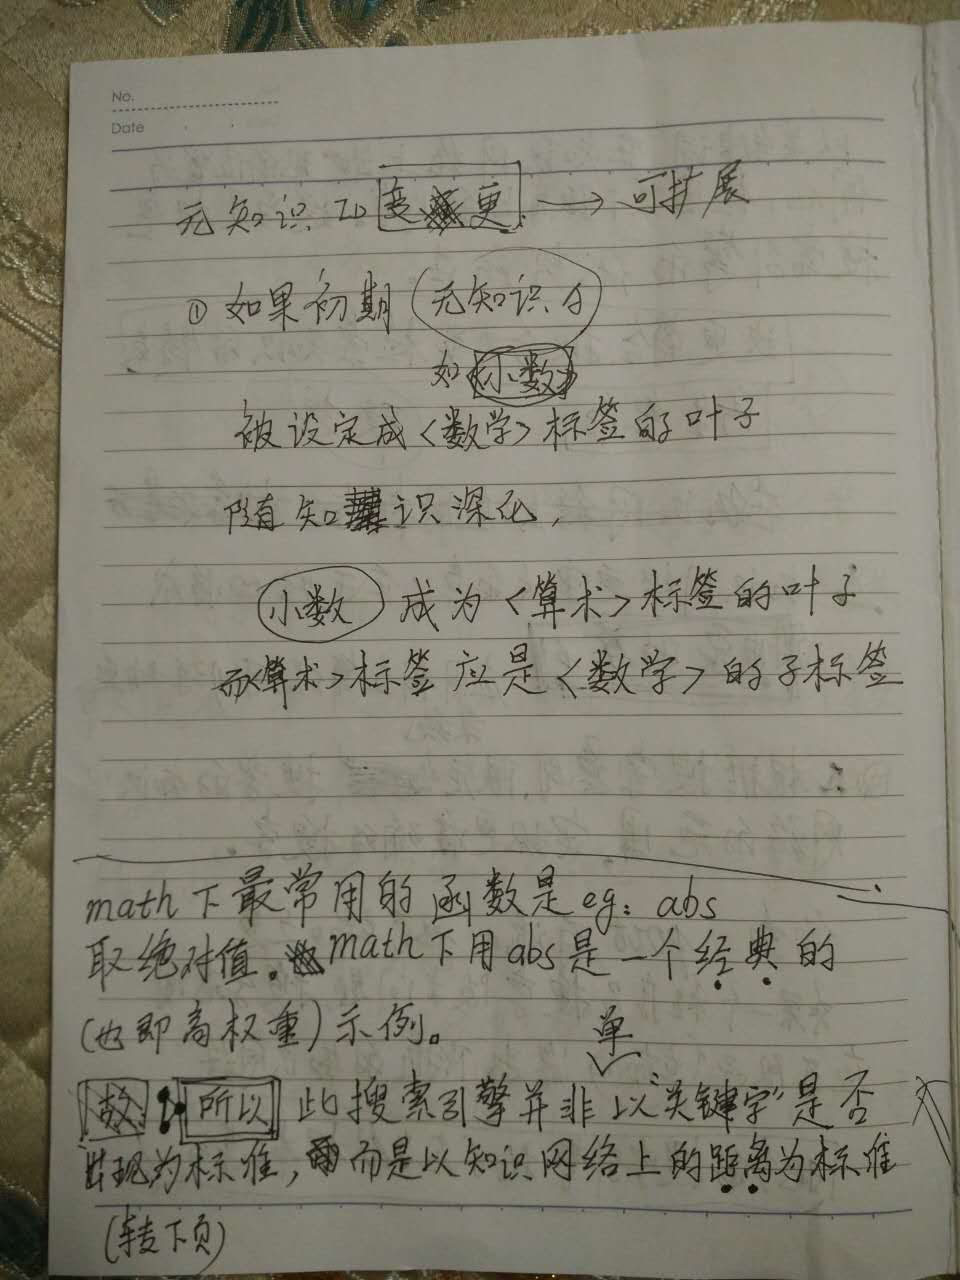 No.
Date
元知识 变更 → 可扩展
① 如果初期 元知识
如 <小数>
被设定成<数学>标签的叶子
随知识深化,
小数 成为<算术>标签的叶子
而<算术>标签应是<数学>的子标签
math下最常用的函数是eg: abs
取绝对值。math下用abs是一个经典的
(也即高权重)示例。
单
故: 所以 此搜索引擎并非以"关键字"是否
出现为标准, 而是以知识网络上的距离为标准
(转下页)